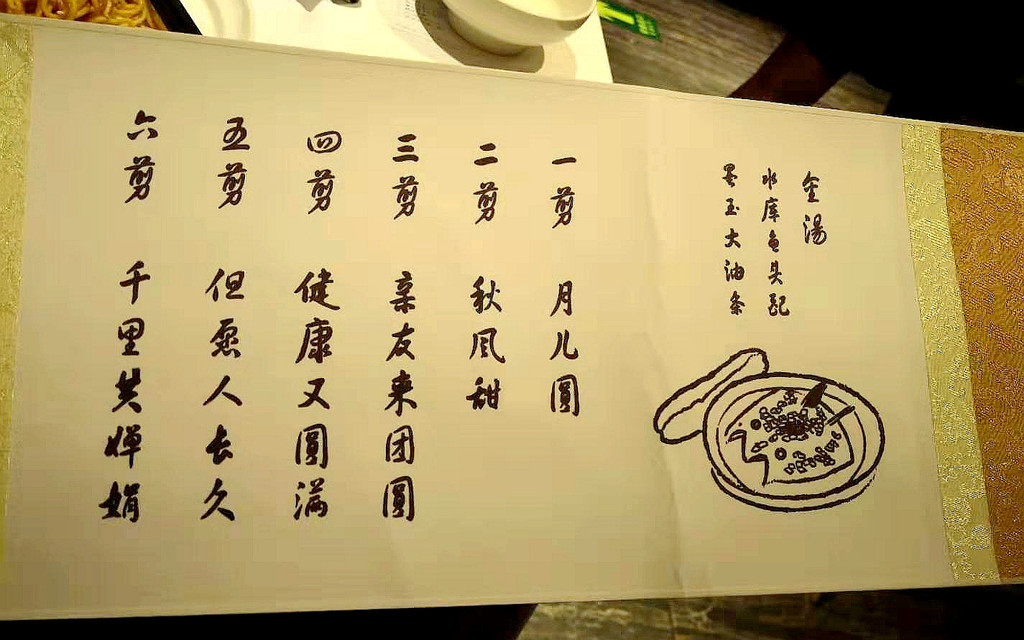 金湯
水库鱼头配
墨玉大油条
一剪 月儿圆
二剪 秋风甜
三剪 亲友来团圆
四剪 健康又圆满
五剪 但愿人长久
六剪 千里共婵娟